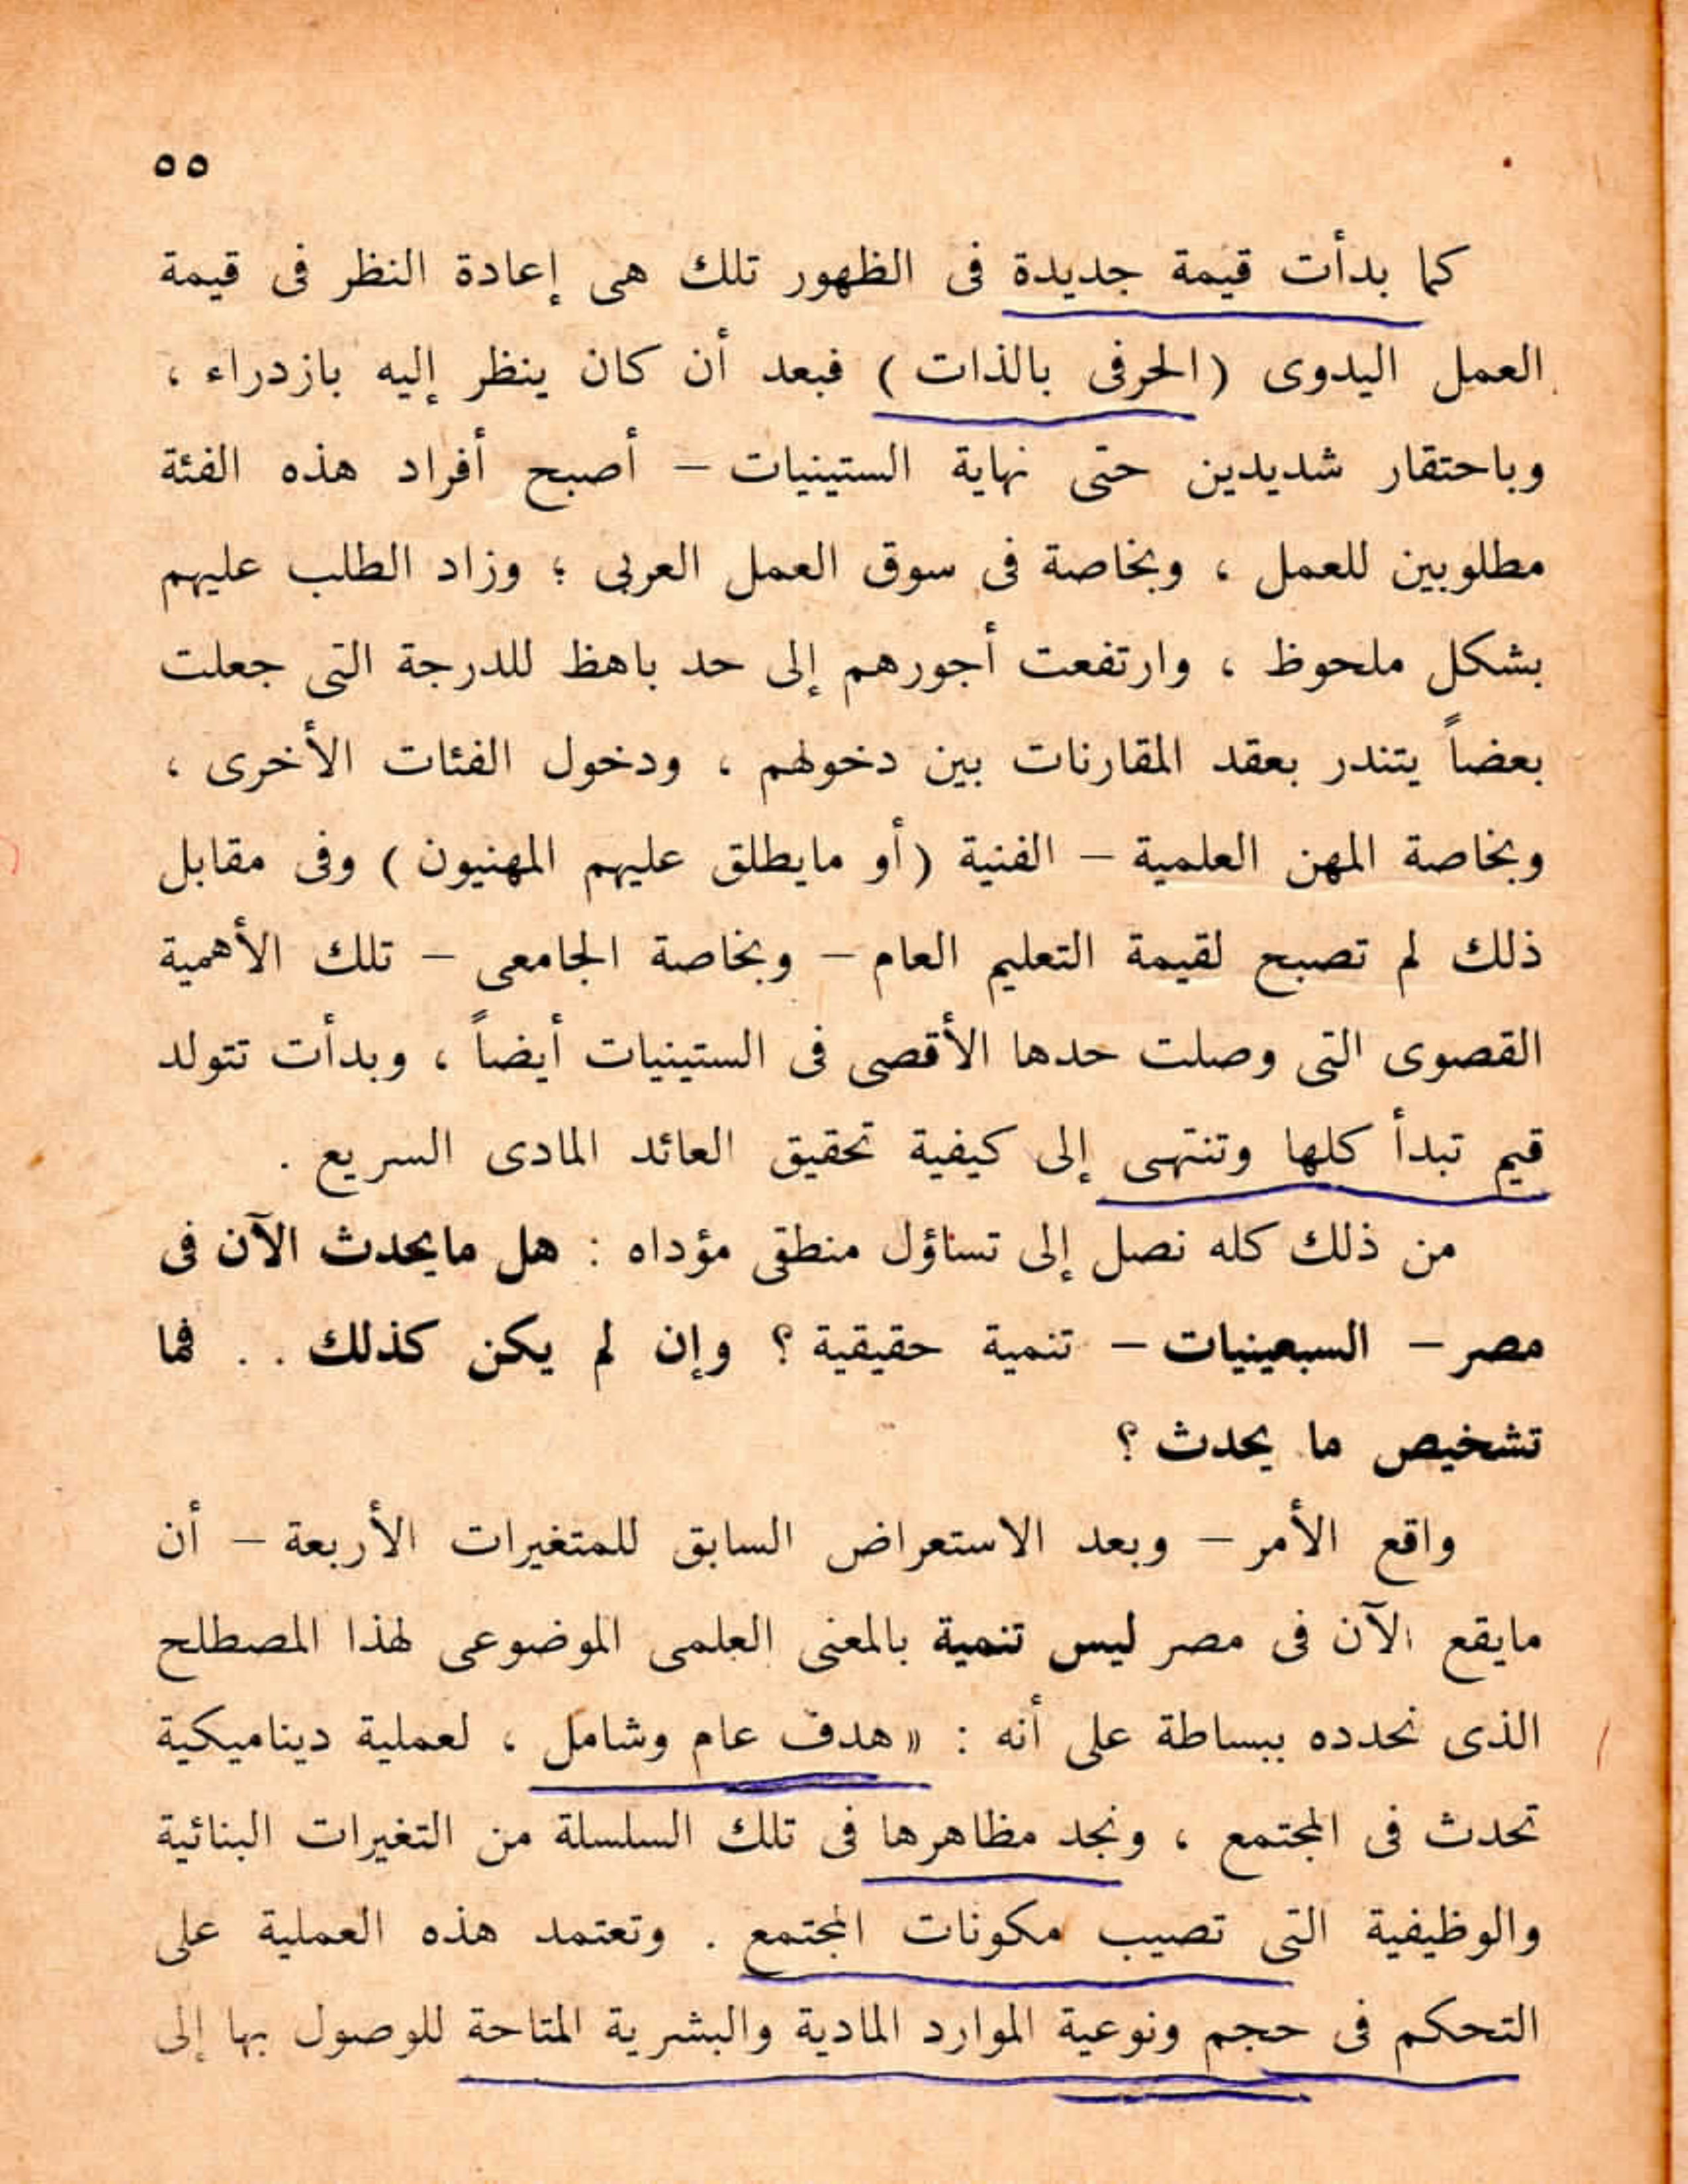 ٥٥
كما بدأت قيمة جديدة فى الظهور تلك هى إعادة النظر فى قيمة
العمل اليدوى (الحرفى بالذات) فبعد أن كان ينظر إليه بازدراء ،
وباحتقار شديدين حتى نهاية الستينيات – أصبح أفراد هذه الفئة
مطلوبين للعمل ، وبخاصة فى سوق العمل العربى ؛ وزاد الطلب عليهم
بشكل ملحوظ ، وارتفعت أجورهم إلى حد باهظ للدرجة التى جعلت
بعضاً يتندر بعقد المقارنات بين دخولهم ، ودخول الفئات الأخرى ،
وبخاصة المهن العلمية – الفنية (أو مايطلق عليهم المهنيون) وفى مقابل
ذلك لم تصبح لقيمة التعليم العام – وبخاصة الجامعى – تلك الأهمية
القصوى التى وصلت حدها الأقصى فى الستينيات أيضاً ، وبدأت تتولد
قيم تبدأ كلها وتنتهى إلى كيفية تحقيق العائد المادى السريع .
من ذلك كله نصل إلى تساؤل منطقى مؤداه : هل مايحدث الآن فى
مصر – السبعينيات – تنمية حقيقية ؟ وإن لم يكن كذلك . . فما
تشخيص ما يحدث ؟
واقع الأمر – وبعد الاستعراض السابق للمتغيرات الأربعة – أن
مايقع الآن فى مصر ليس تنمية بالمعنى العلمى الموضوعى لهذا المصطلح
الذى نحدده ببساطة على أنه : « هدف عام وشامل ، لعملية ديناميكية
تحدث فى المجتمع ، ونجد مظاهرها فى تلك السلسلة من التغيرات البنائية
والوظيفية التى تصيب مكونات المجتمع . وتعتمد هذه العملية على
التحكم فى حجم ونوعية الموارد المادية والبشرية المتاحة للوصول بها إلى